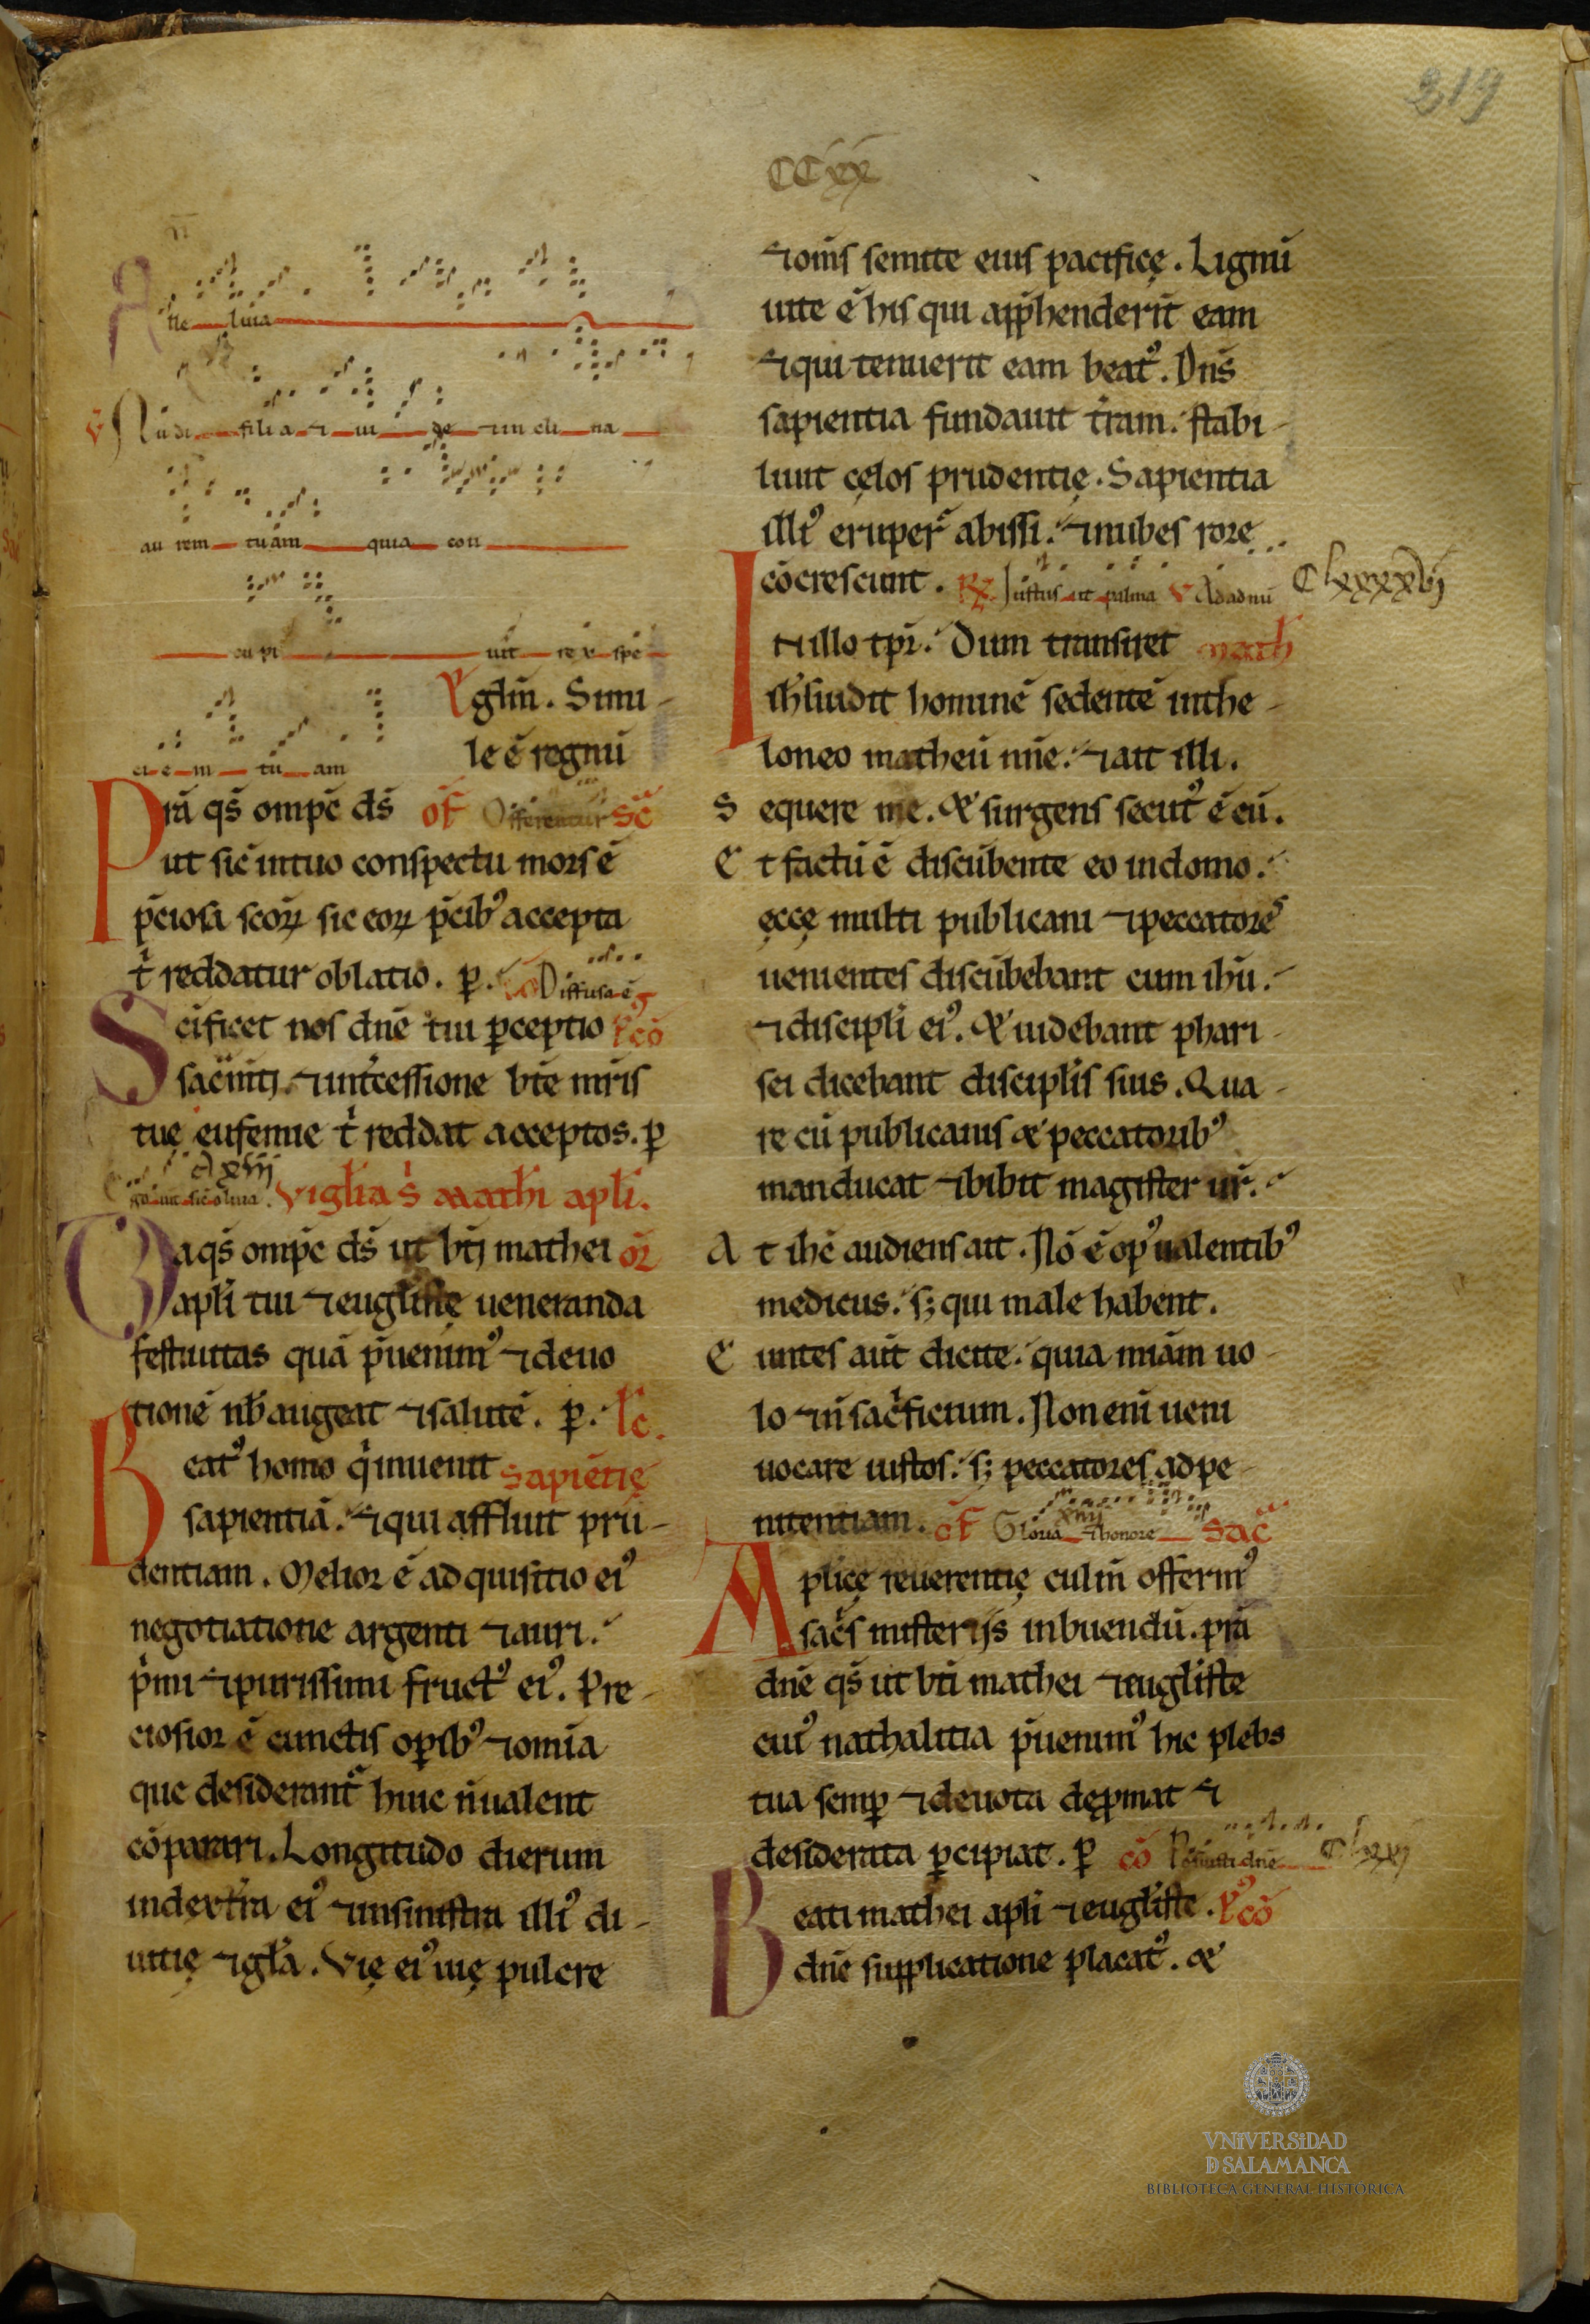 219
CCxx
Alle luia
V Audi filia ⁊ ui de ⁊ in cli na
au rem tuam quia con
cu pi uit rex spe
ci e m tu am
Eṽglm̄. Simi-
le ē regnū
Prā qs̄ omp̄c ds̄ of̄ Offerentur Sc̄
ut sic̄ intuo conspectu mors ē
p̄ciosa scoꝝ sic eoꝝ p̄cibꝰ accepta
t̄ reddatur oblatio. ꝑ. cō Diffusa ē
Scificet nos dn̄e tui ꝑceptio pꝰcō
sac̄mti. ⁊ int̄cessione bt̄e mr̄is
tue eufemie t̄ reddat acceptos. ꝑ
Ego aut sic̄ oliua. Viglia S̄ Mathi apli.
Da qs̄ omp̄c ds̄ ut bt̄i mathei or̄
apli tui ⁊ euglīste ueneranda
festiuitas quā p̄uenimꝰ ⁊ deuo
tionē nb̄ augeat ⁊ salutē. ꝑ. lc̄.
Beatꝰ homo q̄ inuenit Sapiētię
sapientiā. ⁊ qui affluit pru-
dentiam. Melior ē ad quisitio eiꝰ
negotiatione argenti ⁊ auri.
p̄mi ⁊ purissimi fructꝰ eiꝰ. Pre-
ciosior ē cunctis opibꝰ ⁊ omīa
que desiderant̄ huic n̄ualent
cōparari. Longitudo dierum
indextra eiꝰ ⁊ insinistra illiꝰ di-
uitię ⁊ gla. Vię eiꝰ uię pulcre
⁊ omīs semite eius pacificę. Lignū
uite ē his qui app̄henderīt eam
⁊ qui tenuerit eam beatꝰ. Dn̄s
sapientia fundauit t̄ram. stabi-
liuit cęlos prudentię. Sapientia
illiꝰ eruper̄ abissi. ⁊ nubes rore
cōcrescunt. R̄ Iustus ut palma V Ad adnū Clxxxxvij
In illo tp̄r. Dum transiret math
ih̄s uidit hominē sedentē inthe-
loneo matheū nn̄e. ⁊ ait illi.
Sequere me. & surgens secutꝰ ē eū.
Et factū ē discūbente eo indomo.
ęccę multi publicani ⁊ peccatores
uenientes discūbebant cum ihū.
⁊ discipli eiꝰ. & uidebant phari-
sei dicebant disciplis suis. Qua-
re cū publicanis & peccatoribꝰ
manducat ⁊ bibit magister ur̄.
At ihc̄ audiens ait. Nō ē opꝰ ualentibꝰ
medicus. s; qui male habent.
Euntes aūt dicite. quia miām uo-
lo ⁊ n̄ sac̄ficium. Non enī ueni
uocare iustos. s; peccatores ad pe-
nitentiam. of̄ Gloria ⁊ honore Sac̄
Aplicę reuerentię culm̄ offerimꝰ
sac̄s misterijs inbuendū. prā
dn̄e qs̄ ut bt̄i mathei ⁊ euglīste
cuiꝰ nathalitia p̄uenimꝰ hic plebs
tua semꝑ ⁊ deuota deꝓmat ⁊
desiderata ꝑcipiat. ꝑ cō Posuisti dn̄e Clxxj
Beati mathei apli ⁊ euglīste. pꝰcō
dn̄e supplicatione placatꝰ. &
VNiVERSiDAD
D SALAMANCA
BIBLIOTECA GENERAL HISTÓRICA